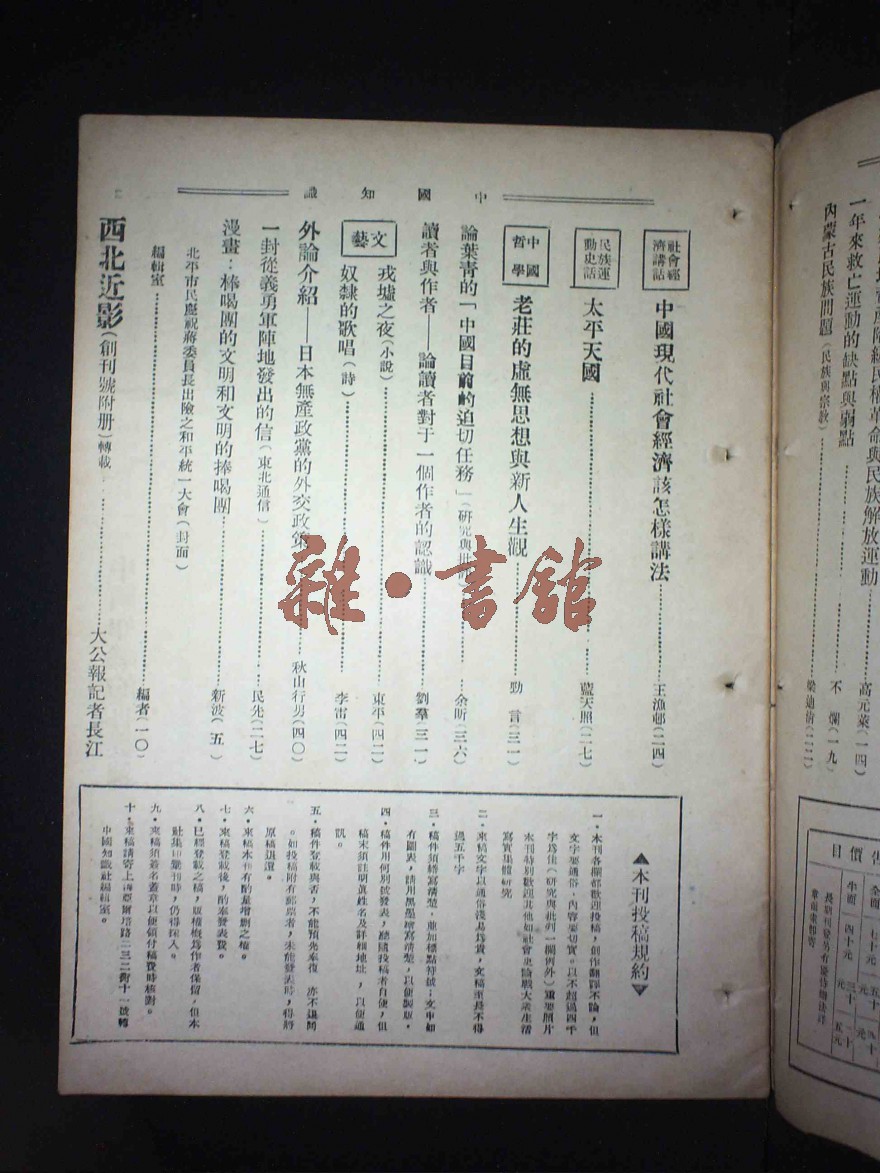 中國知識
社會經濟講話
中國現代社會經濟該怎樣講法……王漁邨(二四)
民族運動史話
太平天國……藍天照(二七)
中國哲學
老莊的虛無思想與新人生觀……勁言(三一)
論葉青的「中國目前的迫切任務」(研究與批……余昕(三六)
讀者與作者——論讀者對于一個作者的認識……劉羣(三一)
文藝
戎墟之夜(小說)……東平(四二)
奴隸的歌唱(詩)……李雷(四二)
外論介紹——日本無產政黨的外交政策……秋山行男(四〇)
一封從義勇軍陣地發出的信(東北通信)……民先(二七)
漫畫:棒喝團的文明和文明的捧喝團……新波(五)
北平市民慶祝蔣委員長出險之和平統一大會(封面)
編輯室……編者(一〇)
西北近影(創刊號附册)轉載……大公報記者長江
▲本刊投稿規約▼
一・本刊各欄都歡迎投稿,創作翻譯不論,但
文字要通俗,內容要切實,以不超過四千
字爲佳(研究與批判一欄例外)重要照片
本刊特別歡迎其他如社會史論戰大衆生活
寫實集體研究
二・來稿文字以通俗淺易爲貴,文稿至長不得
過五千字
三・稿件須繕寫清楚,並加標點符號;文中如
有圖表,請用黑墨繪寫清楚,以便製版,
四・稿件用何別號發表,聽隨投稿者自便,但
稿末須註明眞姓名及詳細地址,以便通
訊。
五・稿件登載與否,不能預先奉復 亦不退還
。如投稿附有郵票者,未能發表時,得將
原稿退還。
六・來稿本刊有酌量增删之權。
七・來稿登載後,酌奉發表費。
八・已經登載之稿,版權概爲作者保留,但本
社集印彙刊時,仍得採入。
九・來稿須簽名蓋章以便領付稿費時核對。
十・來稿請寄上海亞爾培路二三二街十一號轉
中國知識社編輯室。
民族革命與民族解放運動……高元萊(一四)
一年來救亡運動的缺點與弱點……不爛(一九)
內蒙古民族問題(民族與宗教)……梁迪街(二二)
價目
全面
半面
七十元
四十元
長期刊登另有優待辦法詳
章程索即寄
雜・書館